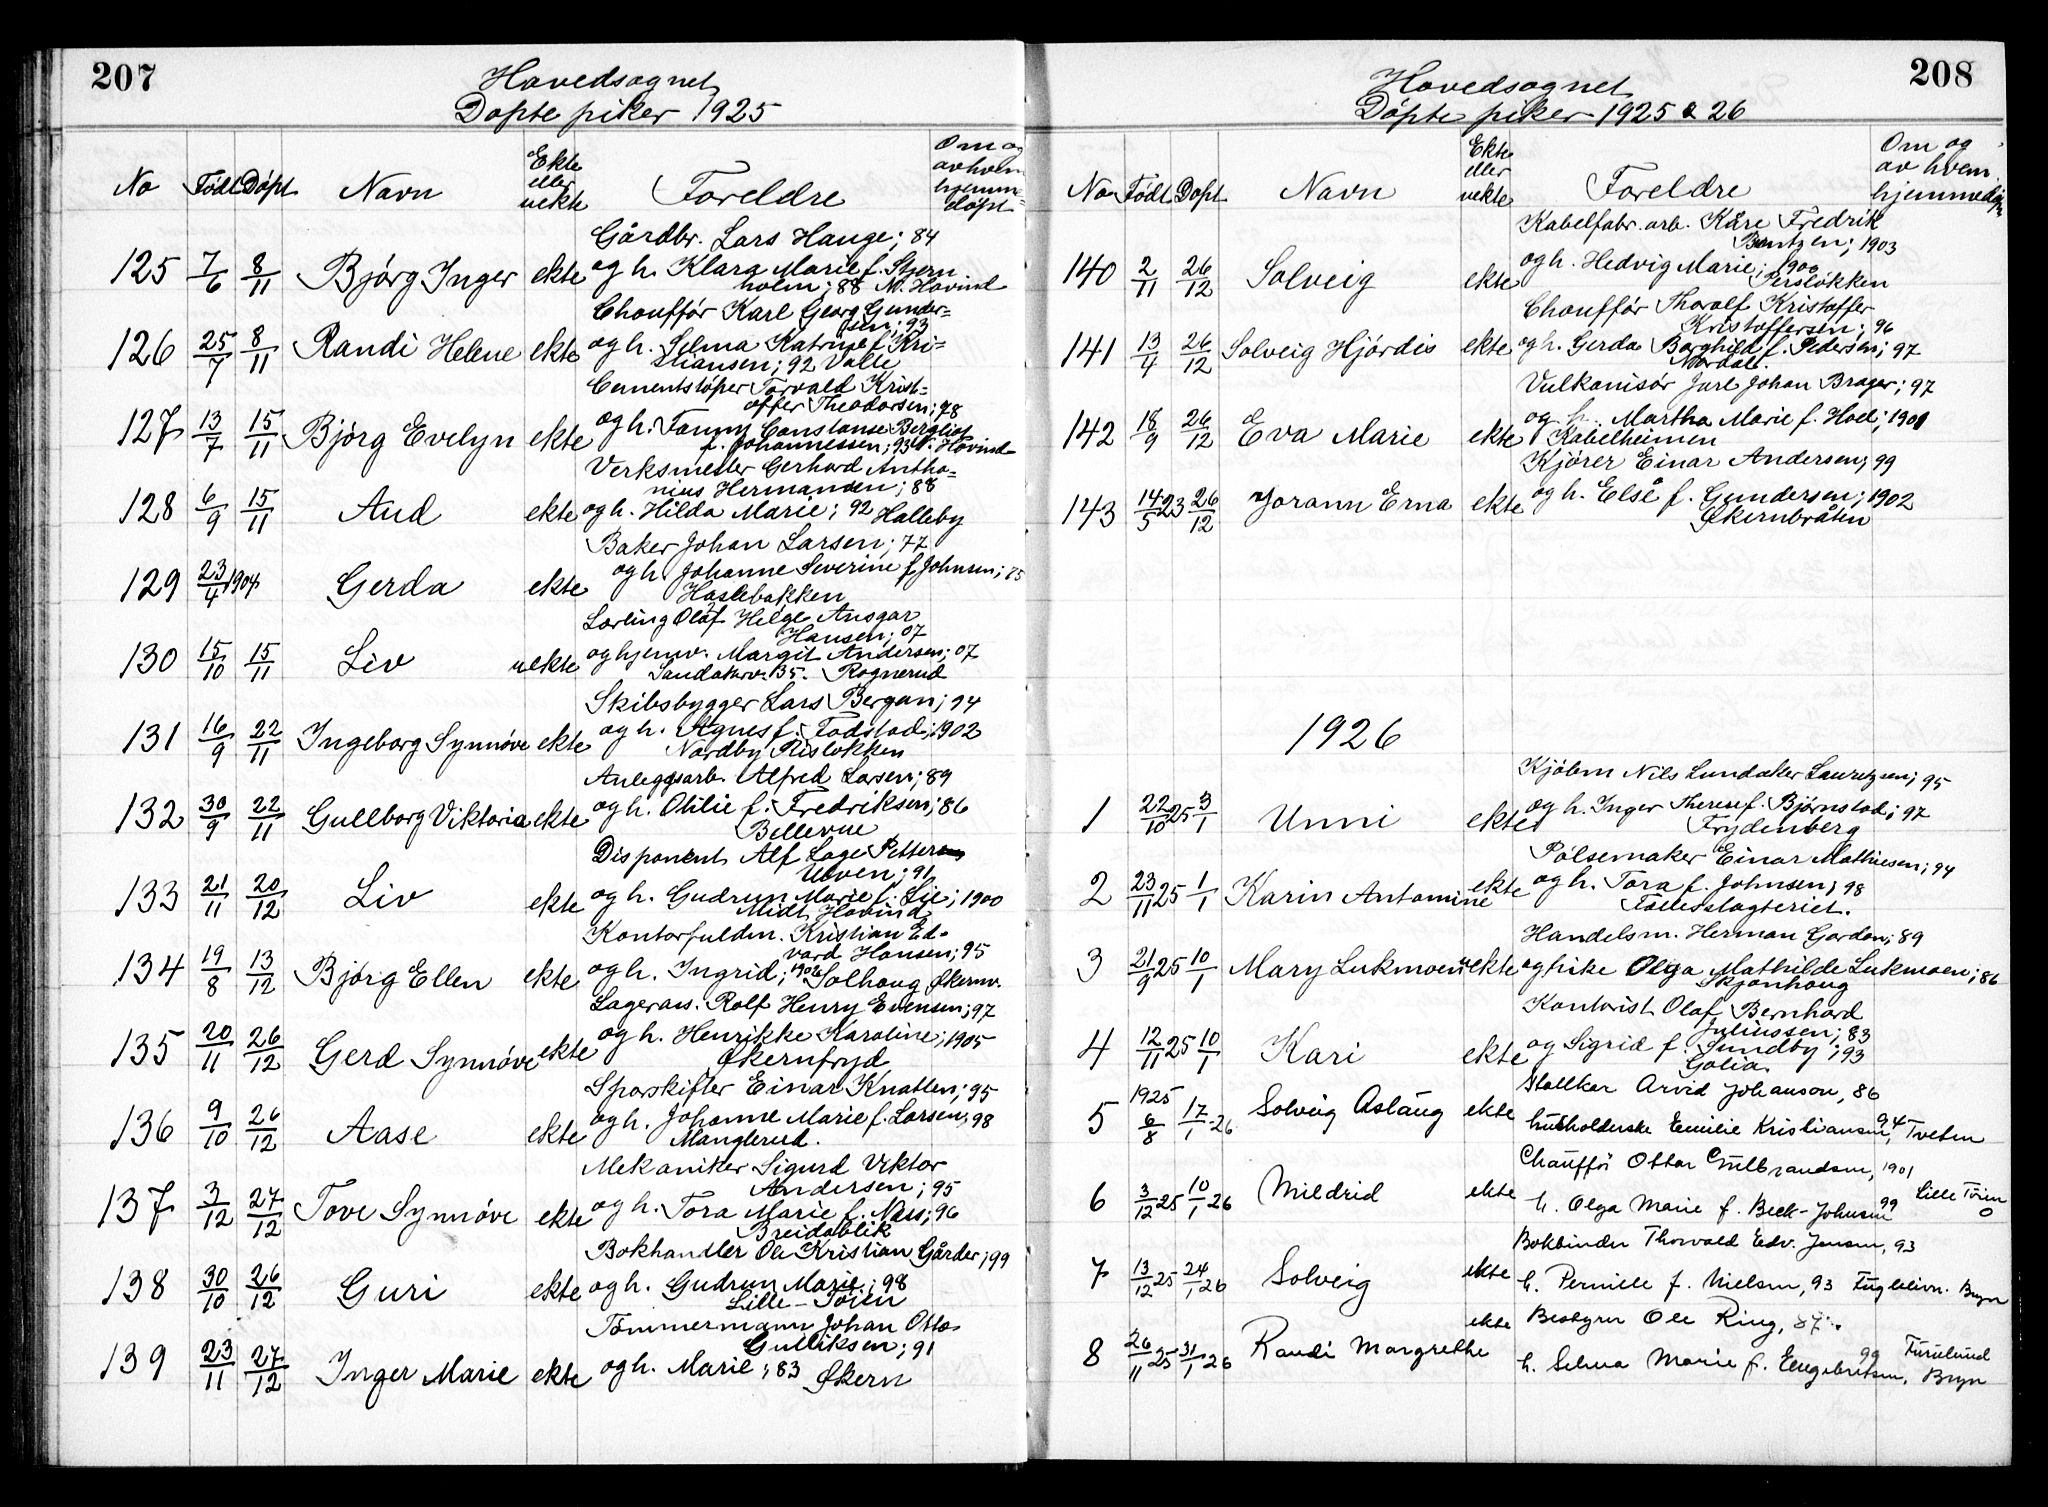 207
Hovedsognet
Døpte piker 1925
No Født Døpt Navn Ekte eller uekte Foreldre Om og av hvem hjemmedøpt
Gårdbr. Lars Hauge; 84
125 7/6 8/11 Bjørg Inger ekte og h. Klara Marie f. Stjern
holm; 88 N. Hovind
Chouffør Karl Georg Gunder=
sen; 93
126 25/7 8/11 Randi Helene ekte og h. Selma Katrine f. Kri-
stiansen; 92 Valle
Cementstøper Torvald Krist=
offer Theodorsen; 78
127 13/7 15/11 Bjørg Evelyn ekte og h. Fanny Constanse Bergliot
f. Johannessen; 93 N. Hovind
Verksmester Gerhard Antho=
nius Hermansen; 88
128 6/9 15/11 Aud ekte og h. Hilda Marie; 92 Halleby
Baker Johan Larsen; 77
129 23/4 1904 Gerda ekte og h. Johanne Severine f. Johnsen; 75
Haslebakken
Lærling Olaf Helge Ansgar
Hansen; 07
130 15/10 15/11 Liv uekte og hjemv. Margit Andersen; 07
Sandakerv. 135. Rognerud
Skibsbygger Lars Bergan; 94
131 16/9 22/11 Ingeborg Synnøve ekte og h. Agnes f. Fodstad; 1902
Nordby Risløkken
Anleggsarb. Alfred Larsen; 89
132 30/9 22/11 Gullborg Viktoria ekte og h. Otilie f. Fredriksen; 86
Bellevue
Disponent Alf Lage Petter
Ulven; 91
133 21/11 20/12 Liv ekte og h. Gudrun Marie f. Lie; 1900
Midt Hovind
Kontorfuldm. Kristian Ed-
vard Hansen; 95
134 19/8 13/12 Bjørg Ellen ekte og h. Ingrid; 1902 Solhaug Økernv.
Lagerass. Rolf Henry Evensen; 97
135 20/11 26/12 Gerd Synnøve ekte og h. Henrikke Karoline; 1905
Økernfryd
Sporskifter Einar Knatten; 95
136 9/10 26/12 Aase ekte og h. Johanne Marie f. Larsen; 98
Manglerud.
Mekaniker Sigurd Viktor
Andersen; 95
137 3/12 27/12 Tove Synnøve ekte og h. Tora Marie f. Næss; 96
Breidablik
Bokhandler Ole Kristian Gårder; 99
138 30/10 26/12 Guri ekte og h. Gudrun Marie; 98
Lille-Tøien
Tømmermann Johan Otto
Gulliksen; 91
139 23/11 27/12 Inger Marie ekte og h. Marie; 83 Økern
208
Hovedsognet
Døpte piker 1925 & 26
No Født Døpt Navn Ekte eller uekte Foreldre Om og av hvem hjemmedøpt
Kabelfabr. arb. Kåre Fredrik
Berntzen; 1903
140 2/11 26/12 Solveig ekte og h. Hedvig Marie; 1900
Persløkken
Chouffør Thoralf Kristoffer
Kristoffersen; 96
141 13/4 26/12 Solveig Hjørdis ekte og h. Gerda Borghild f. Pedersen; 97
Nordal.
Vulkanisør Jarl Johan Brager; 97
142 18/9 26/12 Eva Marie ekte og h. Martha Marie f. Hoel; 1901
Kabelheimen
Kjører Einar Andersen; 99
143 14/5 23 26/12 Jorann Erna ekte og h. Else f. Gundersen; 1902
Økernbråten
1926
Kjøbm Nils Lundaker Lauretzsen; 95
1 22/10 25 3/1 Unni ekte og h. Inger Therese f. Bjørnstad; 97
Frydenberg
Pølsemaker Einar Mathiesen; 94
2 23/11 25 1/1 Karin Antonine ekte og h. Tora f. Johnsen; 98
Fællesslagteriet.
Handelsm. Herman Gordon; 89
3 21/9 25 10/1 Mary Lukmoen uekte og pike Olga Mathilde Lukmoen; 86
Skjønhaug
Kontorist Olaf Bernhard
Juliussen; 83
4 12/11 25 10/1 Kari ekte og Sigrid f. Sundby; 93
Golia
Stallkar Arvid Johanson, 86
5 1925 6/8 17/1 26 Solveig Aslaug ekte husholderske Emilie Kristiansen, 94 Tveten
Chauffør Ottar Gulbrandsen, 1901
6 3/12 25 10/1 26 Mildrid ekte h. Olga Marie f. Beck-Johnsen 99 Lille Tøien
Bokbinder Thorvald Edv. Jensen, 93
7 13/12 25 24/1 26 Solveig ekte h. Pernille f. Nielsen, 93 Fuglelivn. Bryn
Bestyrer Ole Ring, 87
8 26/11 25 31/1 26 Randi Margrethe ekte h. Selma Marie f. Engebretsen, 99 Furulund Bryn